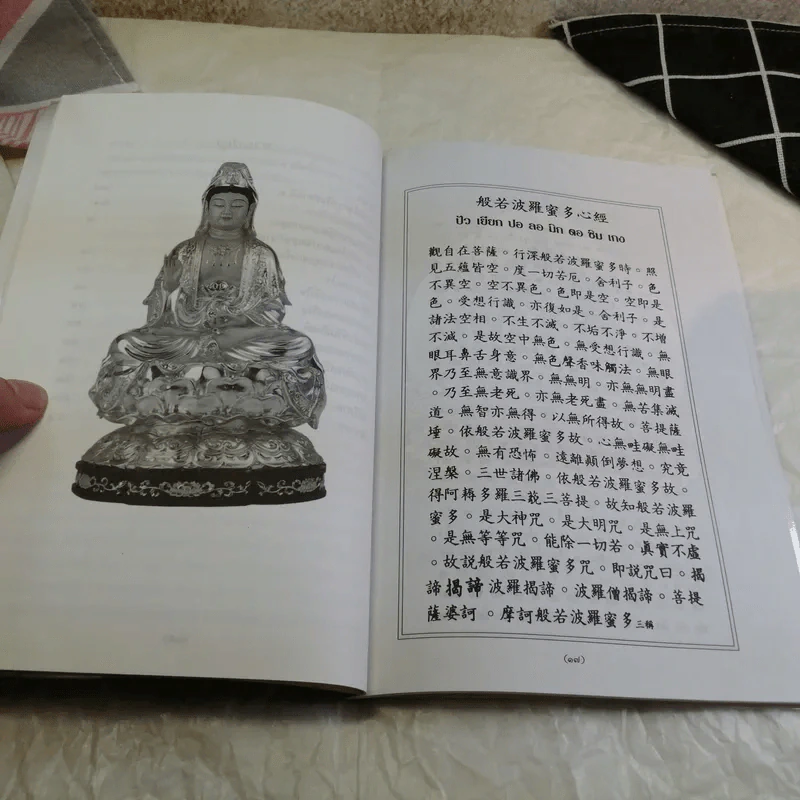 般若波羅蜜多心經
ปัว เยียก ปอ ลอ มิก ตอ ซิม เกง
觀自在菩薩。行深般若波羅蜜多時。照
見五蘊皆空。度一切苦厄。舍利子。色
不異空。空不異色。色即是空。空即是
色。受想行識。亦復如是。舍利子。是
諸法空相。不生不滅。不垢不淨。不增
不減。是故空中無色。無受想行識。無
眼耳鼻舌身意。無色聲香味觸法。無眼
界乃至無意識界。無無明。亦無無明盡
。乃至無老死。亦無老死盡。無苦集滅
道。無智亦無得。以無所得故。菩提薩
埵。依般若波羅蜜多故。心無罣礙無罣
礙故。無有恐怖。遠離顛倒夢想。究竟
涅槃。三世諸佛。依般若波羅蜜多故。
得阿耨多羅三藐三菩提。故知般若波羅
蜜多。是大神咒。是大明咒。是無上咒
。是無等等咒。能除一切苦。真實不虛
。故說般若波羅蜜多咒。即說咒曰。揭
諦揭諦 波羅揭諦。波羅僧揭諦。菩提
薩婆訶。摩訶般若波羅蜜多三稱
(๑๗)